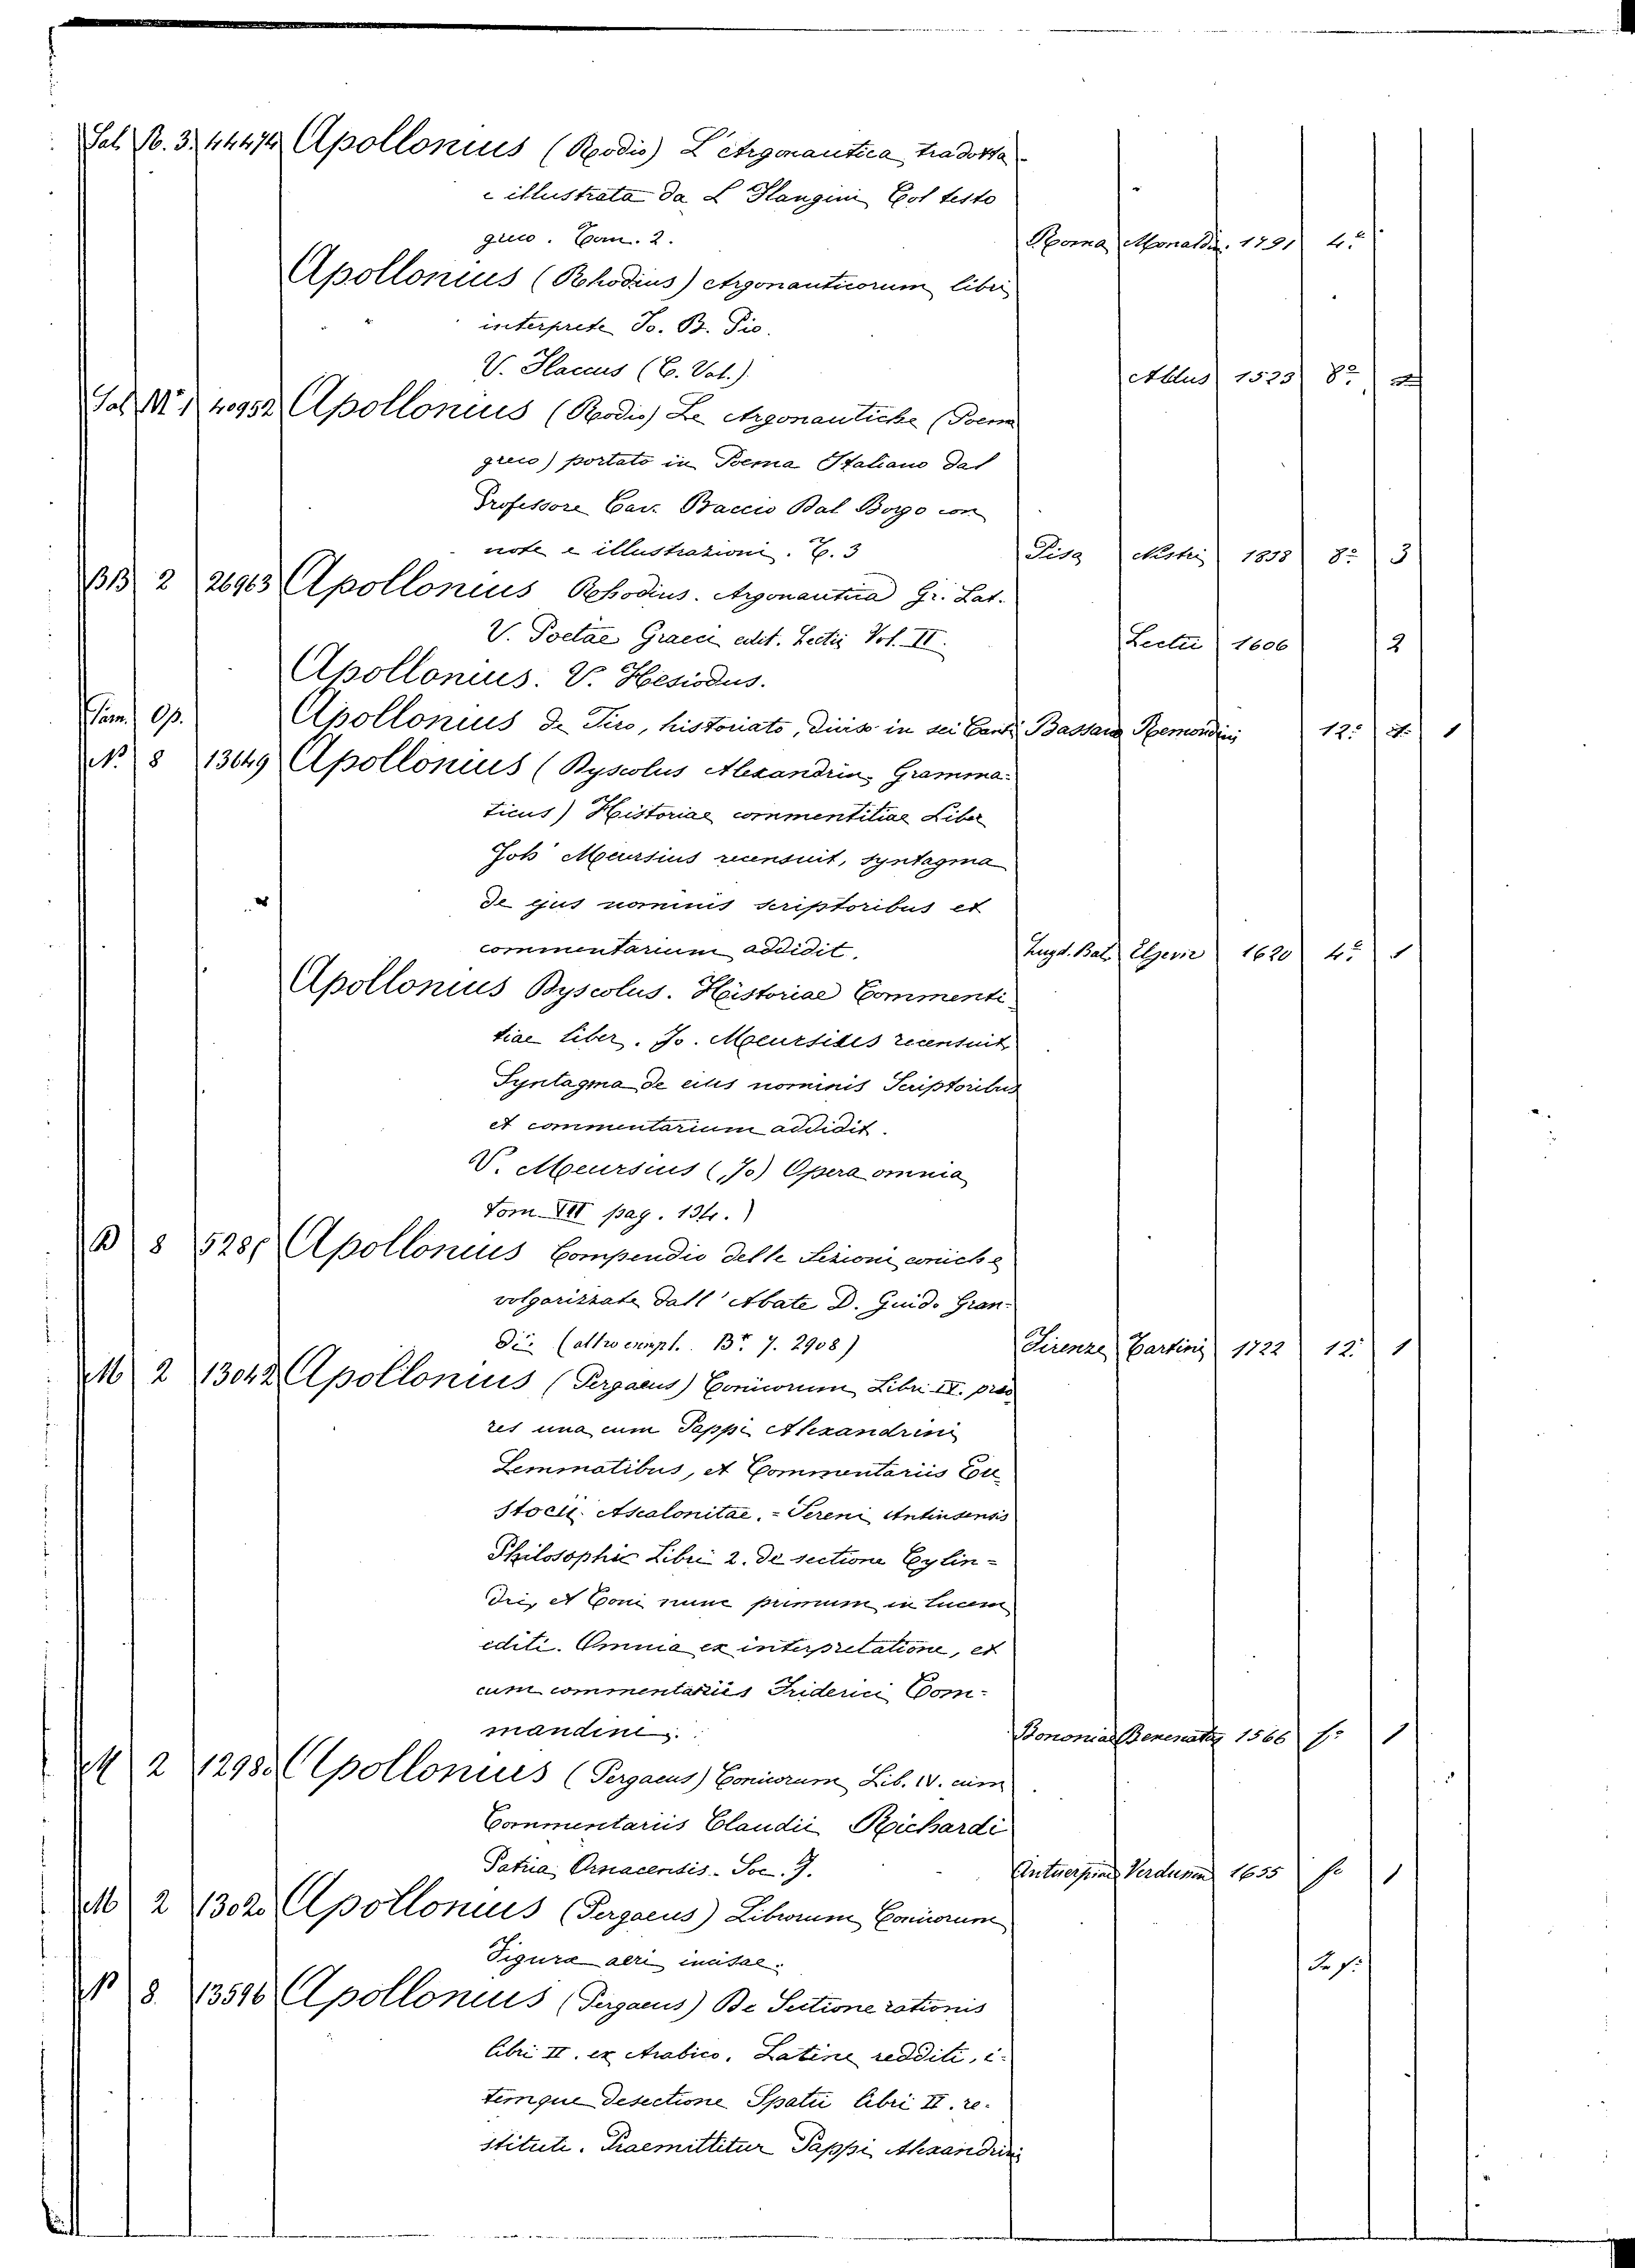 Sal. B. 3. 44474 Apollonius (Rodio) L'Argonautica tradotta
e illustrata da L Flangini Col testo
greco. Tom. 2. Roma Monaldin. 1791 4.º
Apollonius (Rhodius) Argonauticorum libri
interprete Jo. B. Pio.
V. Flaccus (C. Val.) Aldus 1523 8º
Sal M. 1 40952 Apollonius (Rodio) Le Argonautiche (Poema
greco) portato in Poema Italiano dal
Professore Cav. Baccio Dal Borgo con
note e illustrazioni. T. 3 Pisa Nistri 1838 8º 3
BB 2 26963 Apollonius Rhodius. Argonautica Gr. Lat.
V. Poetae Graeci edit. Lectii Vol. II. Lectii 1606 2
Apollonius. V. Hesiodus.
Op. Apollonius de Tiro, historiato, diviso in sei Canti Bassano Remondini 12º 1
N. 8 13649 Apollonius (Dyscolus Alexandrin. Gramma-
ticus) Historiae commentitiae Liber
Joh Meursius recensuit, syntagma
de ejus nominis scriptoribus et
commentarium addidit. Lugd. Bat. Elzevir 1620 4º 1
Apollonius Dyscolus. Historiae Commenti-
tiae liber. Jo. Meursius recensuit
Syntagma de eius nominis Scriptoribus
et commentarium addidit.
V. Meursius (Jo) Opera omnia
Tom VII pag. 134.)
B 8 5286 Apollonius Compendio delle Sezioni coniche
volgarizzate dall' Abate D. Guido Gran-
di. (altro exempl. B. 7. 2908) Firenze Tartini 1722 12. 1
M 2 13042 Apollonius (Pergaeus) Conicorum Libri IV. prio
res una cum Pappi Alexandrini
Lemmatibus, et Commentariis Eu
tocii Ascalonitae. - Sereni Antinsensis
Philosophi Libri 2. de sectione Cylin-
dri, et Coni nunc primum in lucem
editi. Omnia ex interpretatione, et
cum commentariis Friderici Com-
mandini. Bononiae Benenatij 1566 f.º 1
M 2 12980 Apollonius (Pergaeus) Conicorum Lib. IV. cum
Commentariis Claudii Richardi
Patria Ornacensis. Soc. J. Antuerpiae Verdussen 1655 fo 1
M 2 13020 Apollonius (Pergaeus) Librorum Conicorum
Figurae aeri incisae. In f.º
N 8. 13596 Apollonius (Pergaeus) De Sectione rationis
libri II. ex Arabico. Latine redditi, i-
temque de sectione Spatii libri II. re-
stituti. Praemittitur Pappi Alexandrini